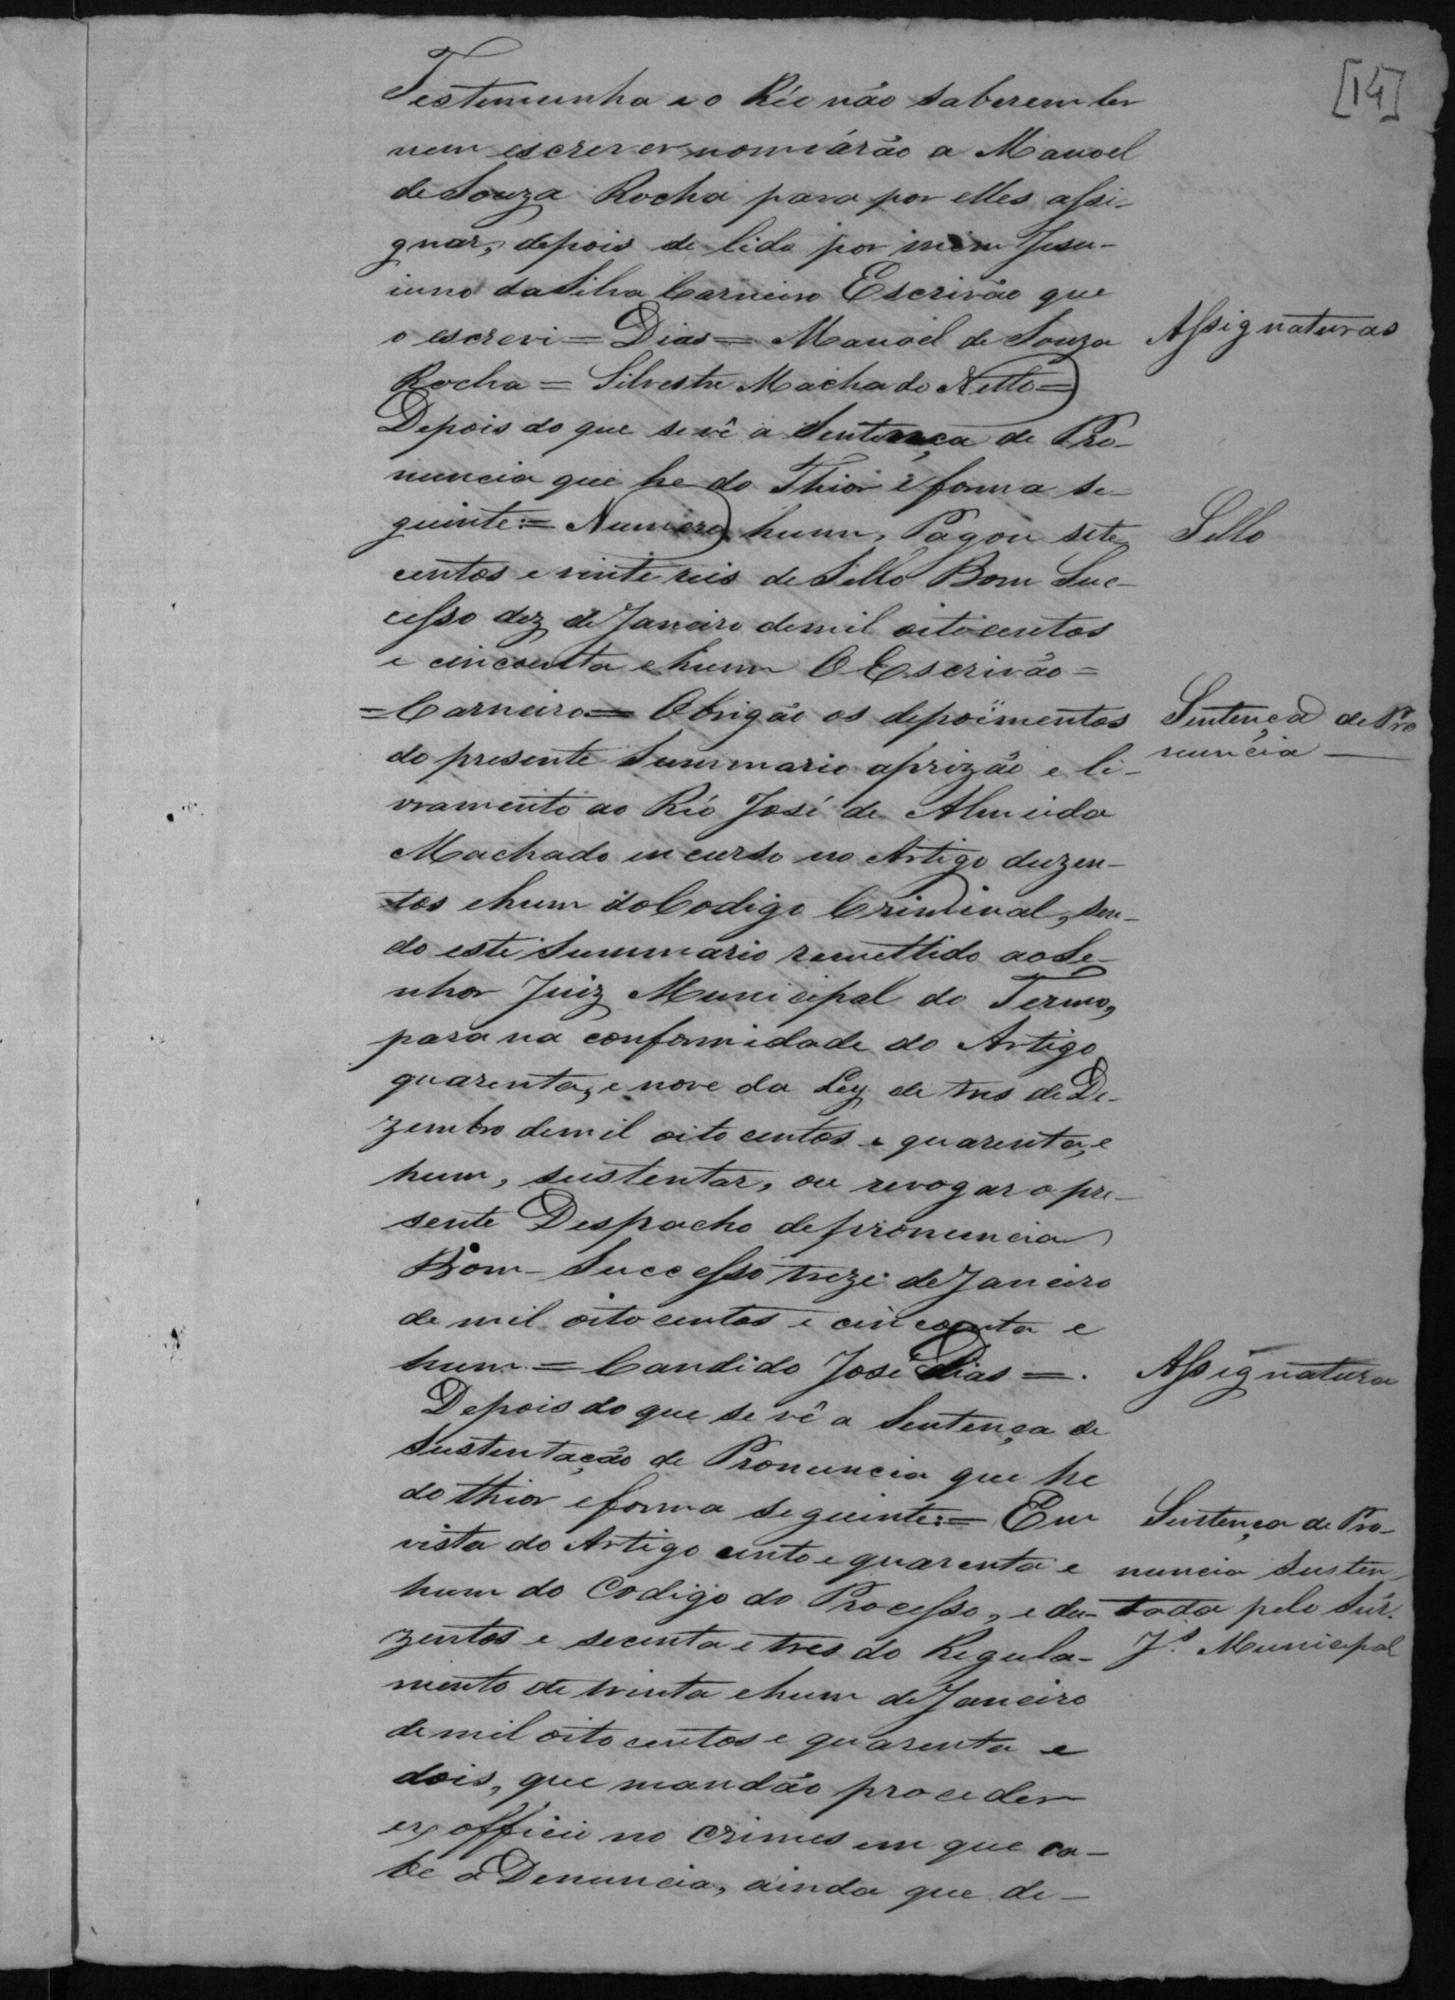 [14]
Testemunha e o Réo não saberem ler
nem escrever, nomiárão a Manoel
de Souza Rocha para por elles assi-
gnar, depois de lido por mim Jesu-
iuno da Silva Carneiro Escrivão que
o escrevi = Dias = Manoel de Souza
Assignaturas
Rocha = Silvestre Machado Netto =
Depois do que se vê a Sentença de Pro-
nuncia que he do Thior e forma se-
guinte := Numero hum, Pagou sete
Sello
centos e vinte reis de Sello Bom Suc-
cesso dez de Janeiro de mil oitocentos
e cincoenta e hum O Escrivão =
= Carneiro = Obrigão os depoimentos
Sentença de Pro
nuncia —
do presente Summario a prizão e li-
vramento ao Réo José de Almeida
Machado incurso no Artigo duzen-
tos e hum do Codigo Criminal, sen-
do este Summario remettido ao Se-
nhor Juiz Municipal do Termo,
para na conformidade do Artigo
quarenta, e nove da Ley de tres de De-
zembro de mil oito centos e quarenta, e
hum, sustentar, ou revogar o pre-
sente Despacho de pronuncia
Bom-Successo treze de Janeiro
de mil oito centos e cincoenta e
hum = Candido José Dias = .
Assignatura
Depois do que se vê a Sentença de
Sustentação de Pronuncia que he
do thior e forma seguinte := Em
Sentença de Pro-
vista do Artigo cento e quarenta e
nuncia susten
hum do Codigo do Processo, e du-
tada pelo Snr.
zentos e secenta e tres do Regula-
J.s Municipal
mento de trinta e hum de Janeiro
de mil oito centos e quarenta e
dois, que mandão proceder
ex officio no crimes em que ca-
be a Denuncia, ainda que de-